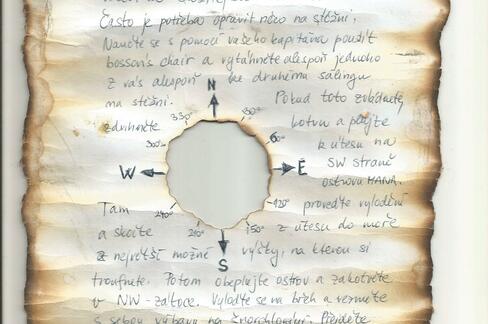 Často je potřeba opravit něco na stěžni.
Naučte se s pomocí vašeho kapitána použít
bosson's chair a vytáhněte alespoň jednoho
z vás alespoň ke druhému sálingu
na stěžni.
N
Pokud toto zvládnete,
zdvihněte
330°
30°
kotvu a plujte
300°
60°
k útesu na
W
E
SW straně
ostrovu MANA.
Tam
240°
120°
proveďte vylodění
a skočte
210°
150°
z útesu do moře
S
z největší možné výšky, na kterou si
troufnete. Potom obeplujte ostrov a zakotvěte
v NW-zátoce. Vyloďte se na břeh a vezměte
s sebou výbavu na šnorchlování. Přejděte